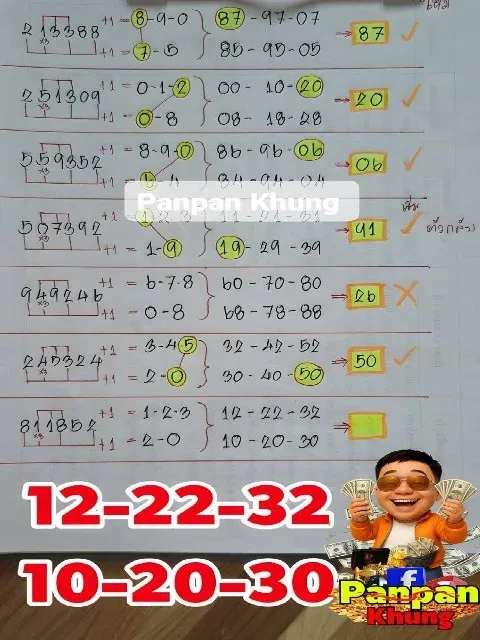 +1 = 8-9-0 87-97-07
213388 x3 ⇒ 87 ✓
+1 = 7-5 85-95-05
+1 = 0-1-2 00-10-20
251309 x3 ⇒ 20 ✓
+1 = 0-8 08-18-28
+1 = 8-9-0 86-96-06
559352 x3 ⇒ 06 ✓
84-94-04
Panpan Khung
507392 x3 ⇒ 91 ✓
+1 = 1-9 19-29-39
+1 = 6-7-8 60-70-80
949246 x3 ⇒ 26 ✗
+1 = 0-8 68-78-88
+1 = 3-4-5 32-42-52
245324 x3 ⇒ 50 ✓
+1 = 2-0 30-40-50
+1 = 1-2-3 12-22-32
811852 x3 ⇒
+1 = 2-0 10-20-30
12-22-32
10-20-30
f
Panpan
Khung